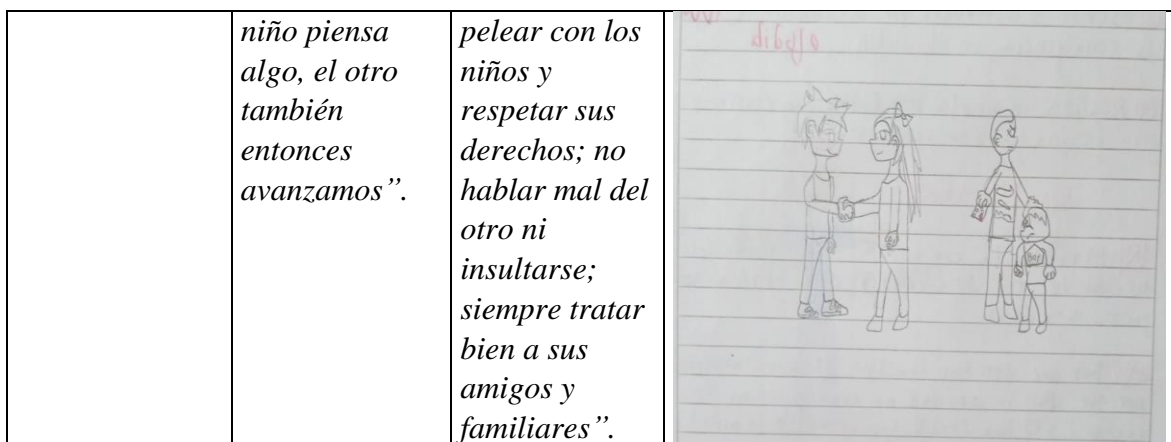 niño piensa
algo, el otro
también
entonces
avanzamos”.
pelear con los
niños y
respetar sus
derechos; no
hablar mal del
otro ni
insultarse;
siempre tratar
bien a sus
amigos y
familiares”.